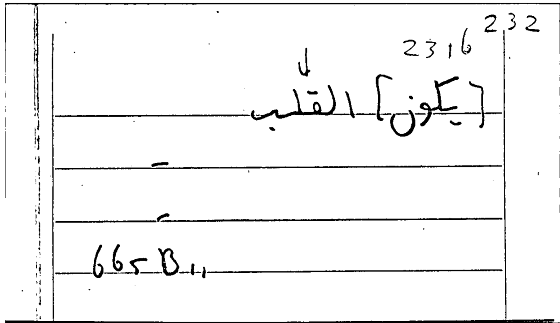 232
23,6
[يكون] القلب
-
-
665 B,,